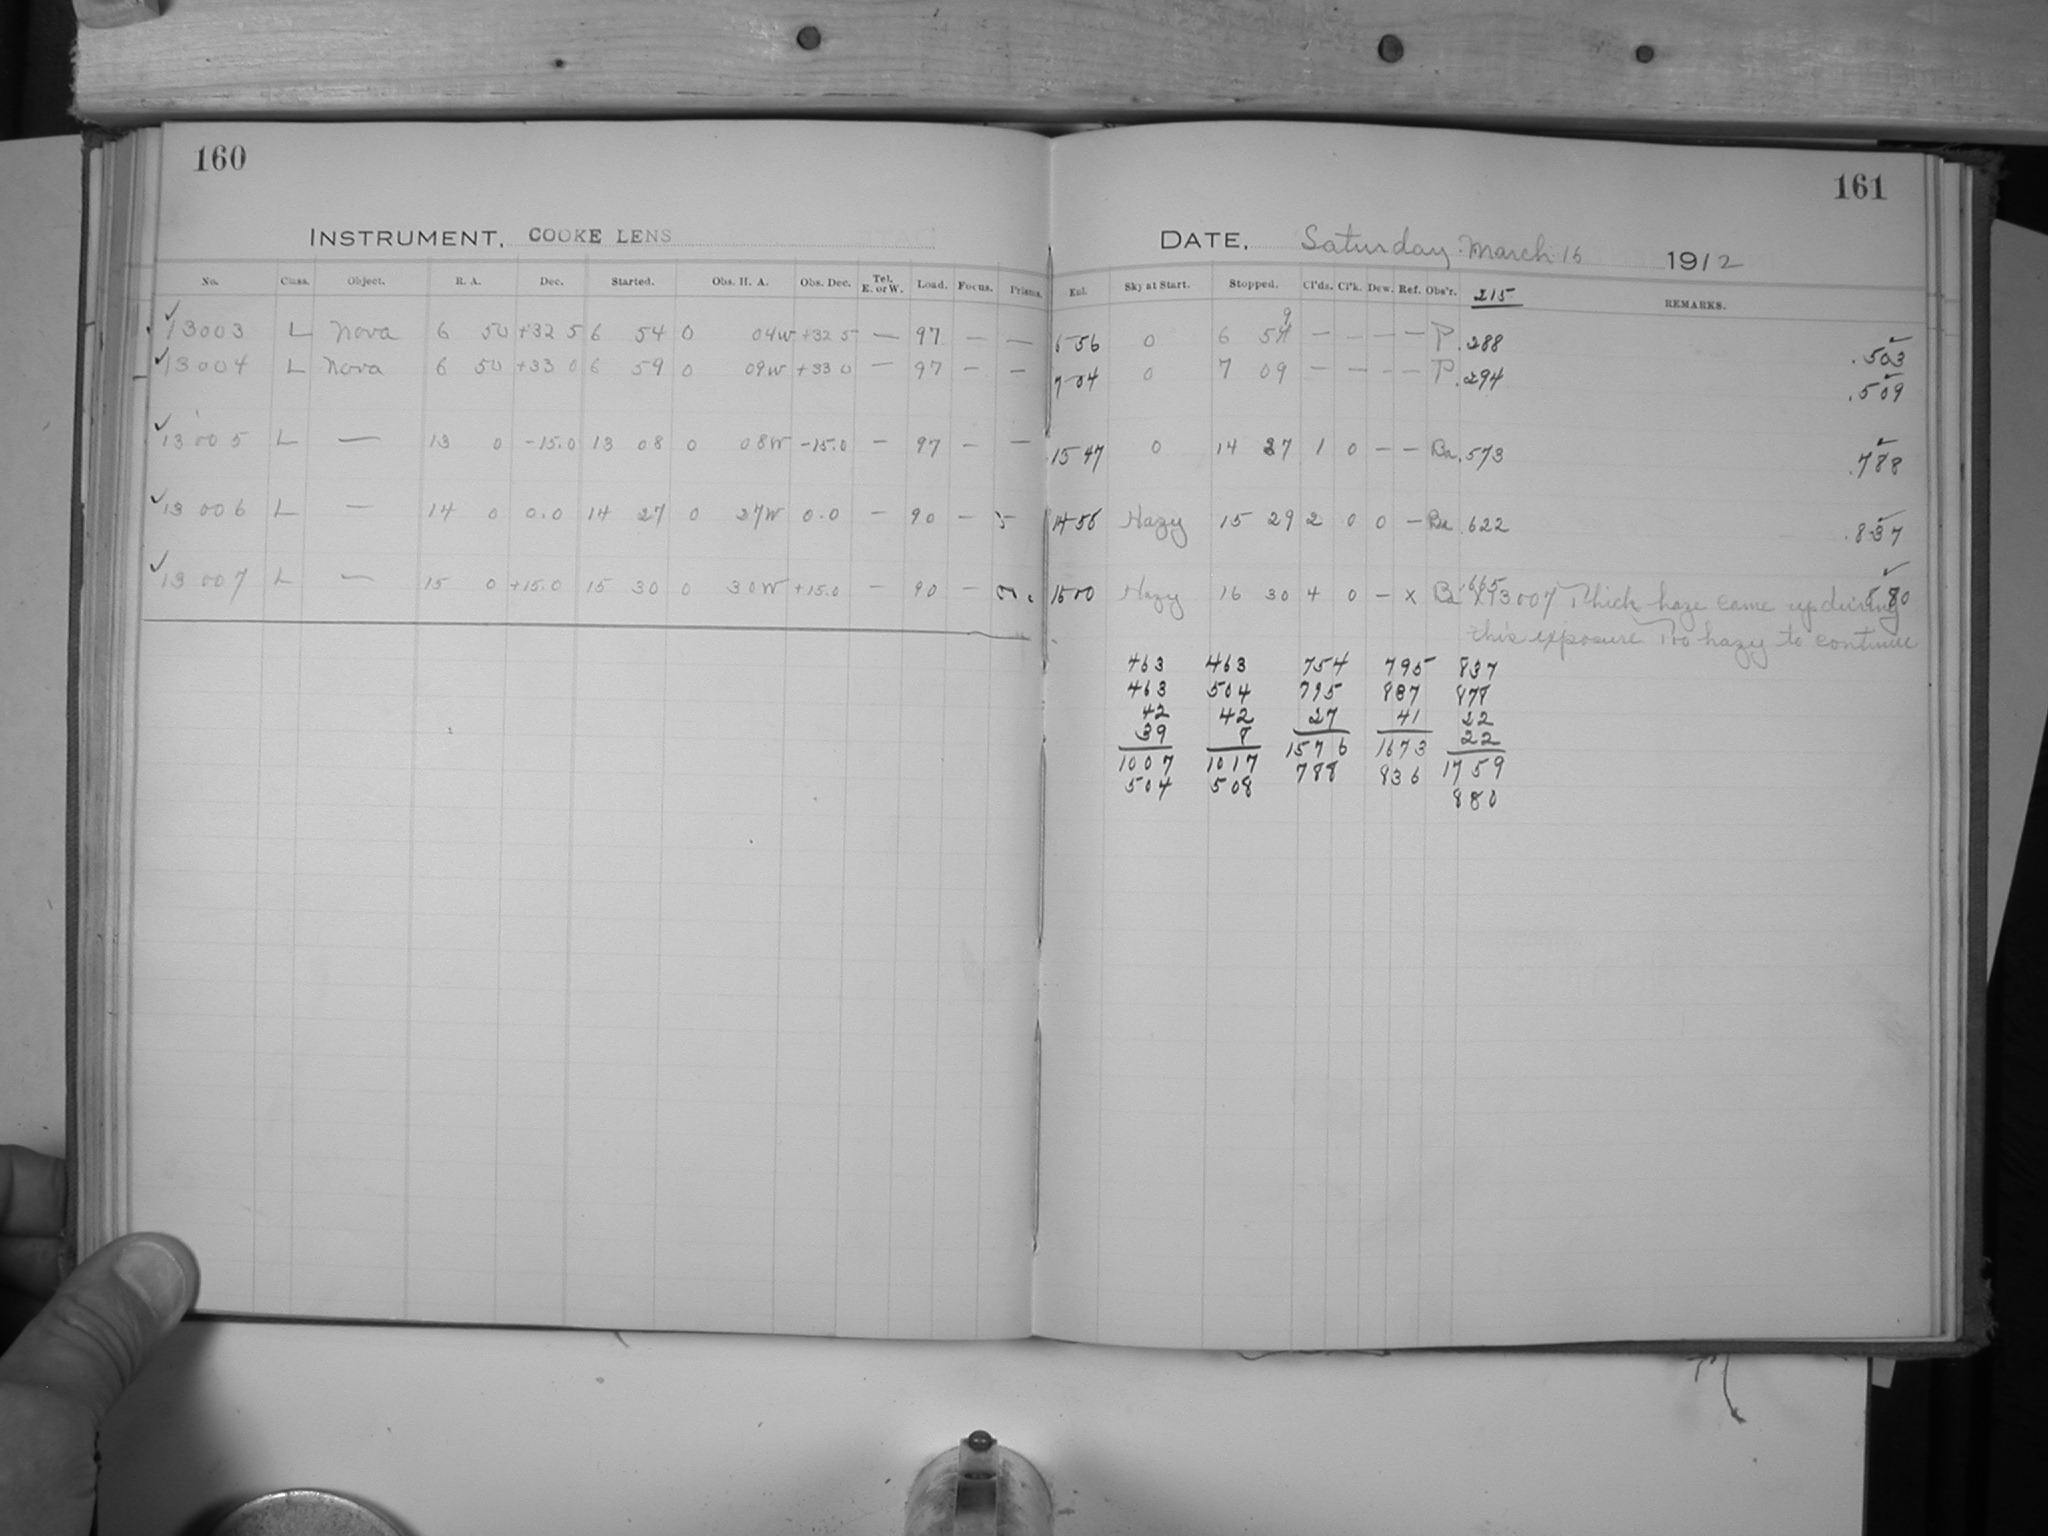 160
161
INSTRUMENT, COOKE LENS
DATE, Saturday March 16 1912
No. Class. Object. R. A. Dec. Started. Obs. H. A. Obs. Dec. Tel. E. or W. Load. Focus. Prisms. Exl. Sky at Start. Stopped. Cl'ds. Cl'k. Dew. Ref. Obs'r. 215 REMARKS.
✓13003 L Nova 6 50 +32 5 6 54 0 04W +32 5 — 97 — — 6 56 0 6 59 — — — — P .288 .503
✓13004 L Nova 6 50 +33 0 6 59 0 09W +33 0 — 97 — — 7 04 0 7 09 — — — — P .294 .509
✓13005 L — 13 0 -15.0 13 08 0 08W -15.0 — 97 — — 13 47 0 14 27 1 0 — — Ba .573 .788
✓13006 L — 14 0 0.0 14 27 0 27W 0.0 — 90 — 14 56 Hazy 15 29 2 0 0 — Ba .622 .837
✓13007 L — 15 0 +15.0 15 30 0 30W +15.0 — 90 — 1500 Hazy 16 30 4 0 — x Ba .665 x13007 Thick haze came up during .880
this exposure Too hazy to continue
463 463 754 795 837
463 504 795 887 878
42 42 27 41 22
39 8 1576 1673 22
1007 1017 788 836 1759
504 508 880